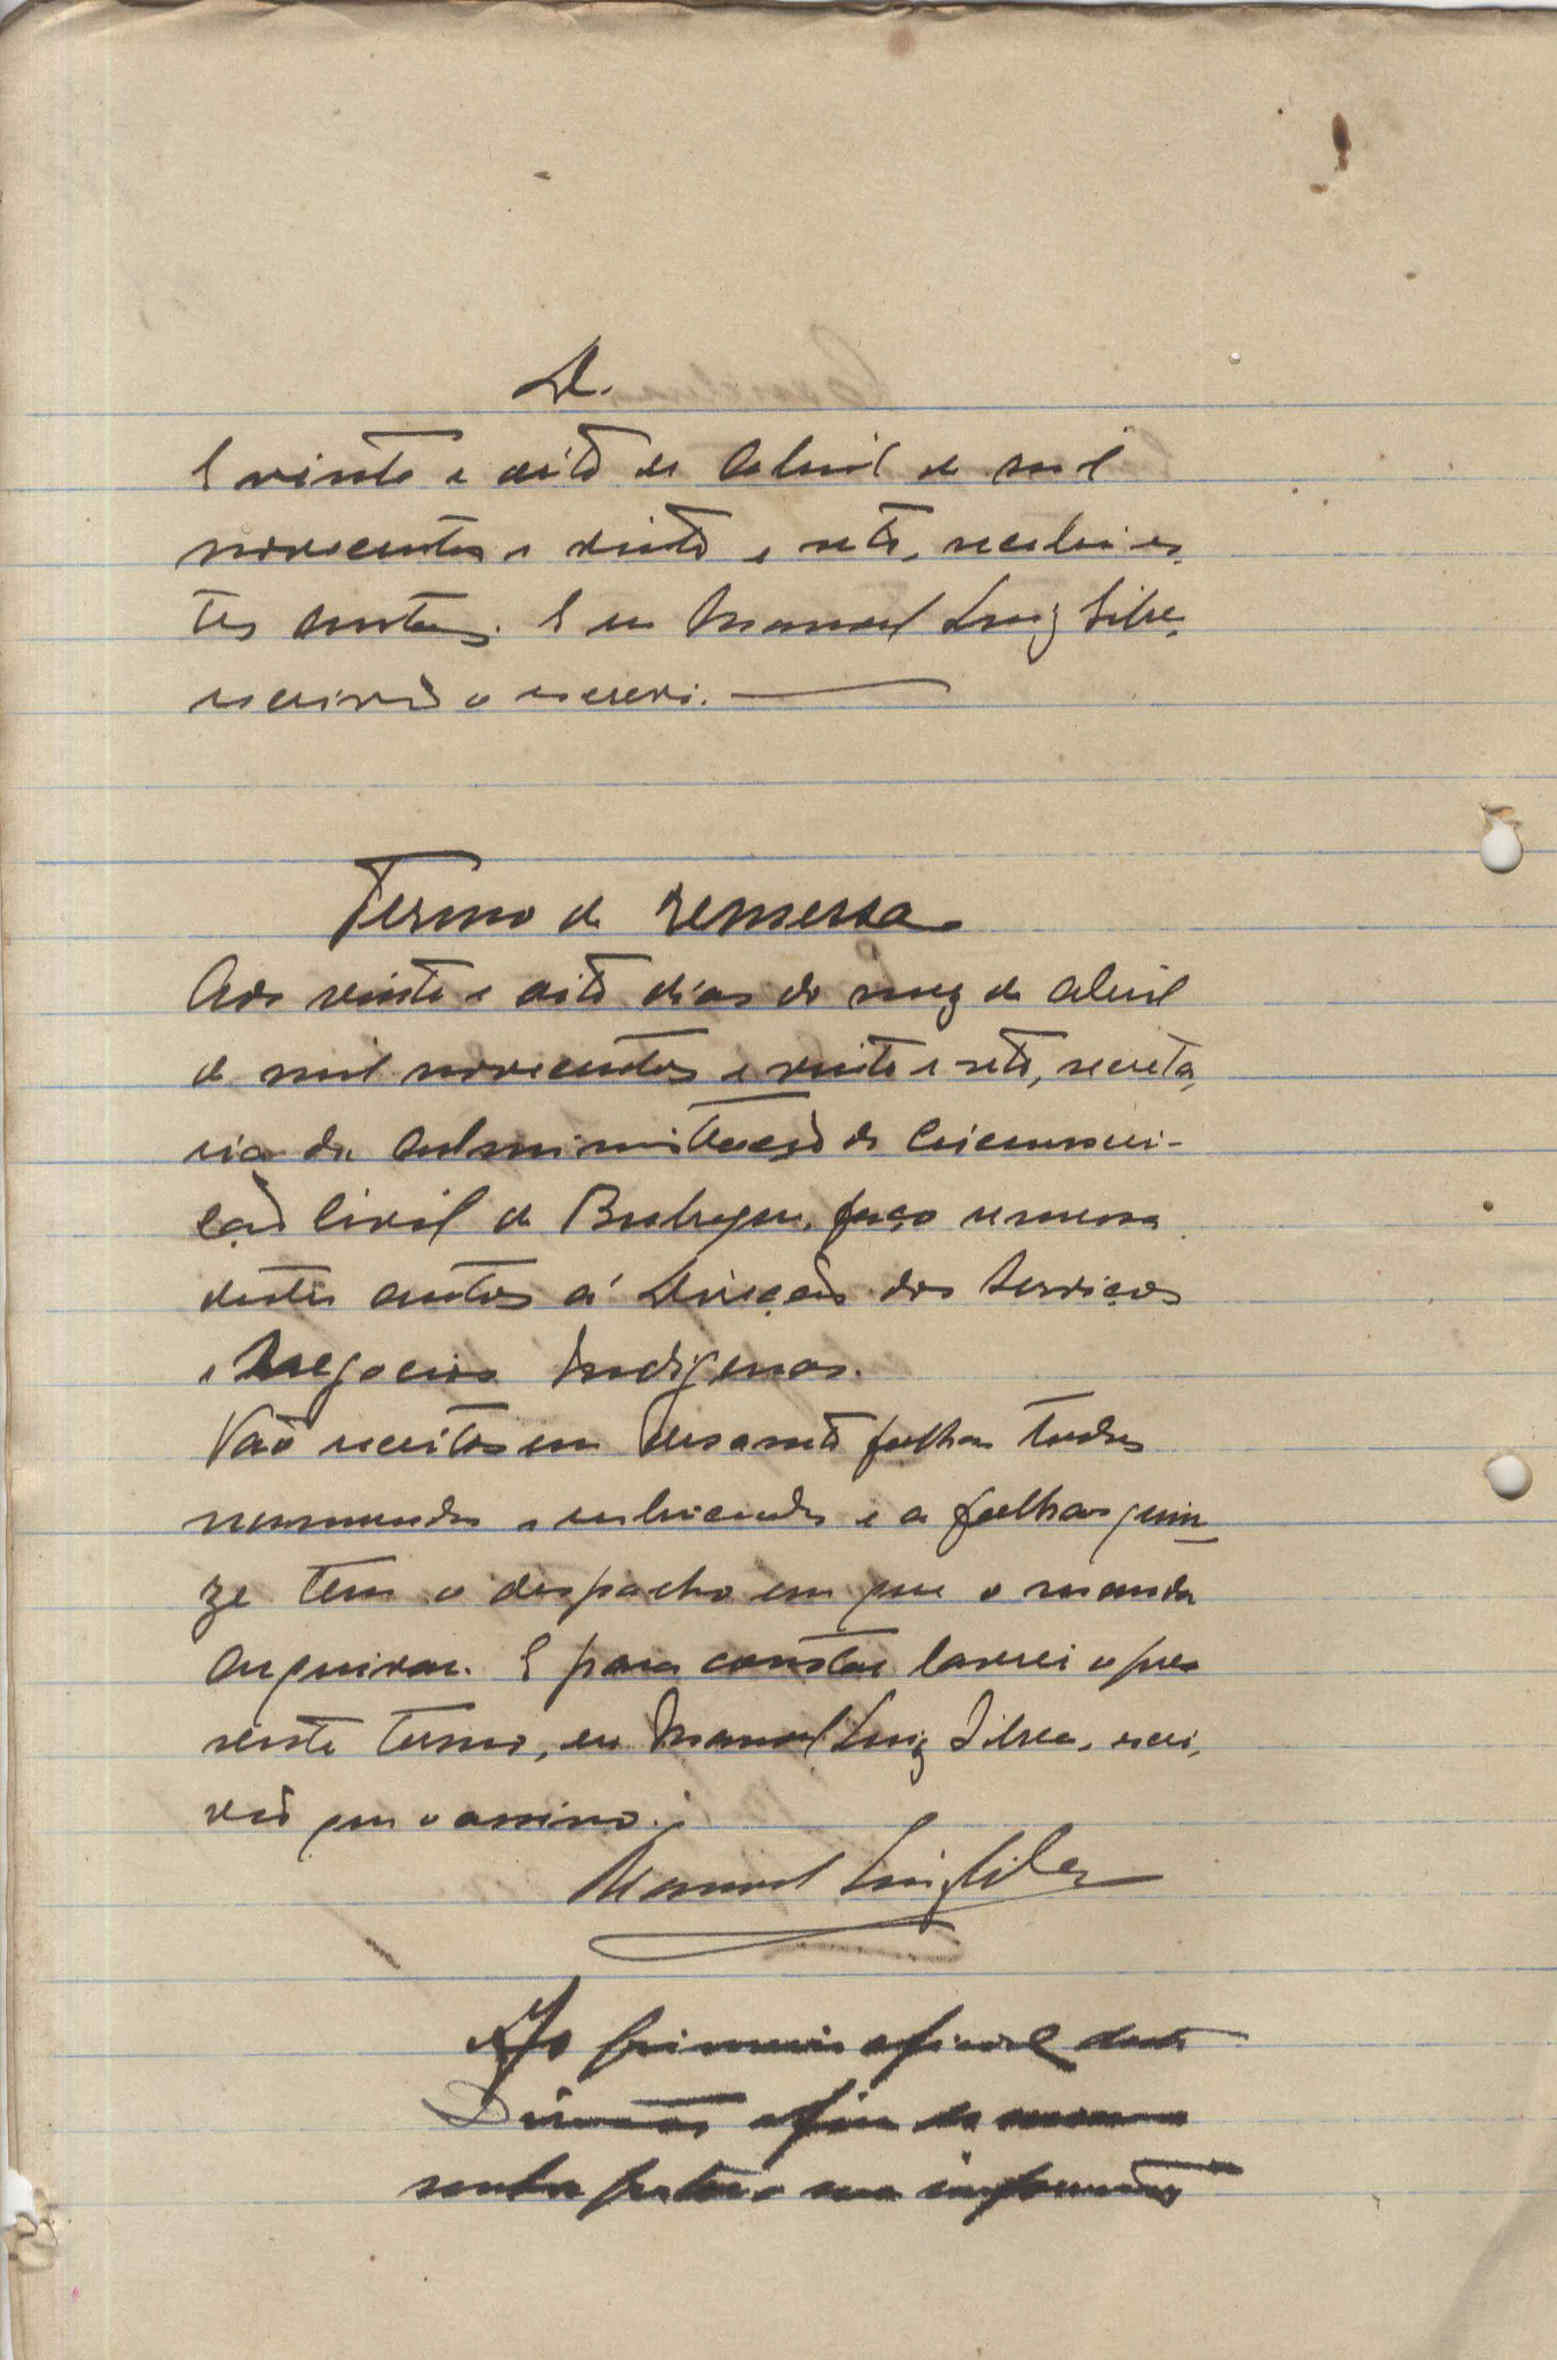 D.
E vinte e oito de Abril de mil
novecentos e vinte e sete, recebi es-
tes autos. E eu Manuel Luiz Silva,
escrivão o escrevi.
Termo de remessa
Aos vinte e oito dias do mez de Abril
de mil novecentos e vinte e sete, secreta-
ria da Administração da Circunscri-
ção Civil de faço remessa
destes autos á Direcção dos Serviços
e Negocios Indigenas.
Vão escritos em desasete folhas todas
numeradas e rubricadas e a folhas quin-
ze tem o despacho em que o manda
arquivar. E para constar lavrei o pre-
sente termo, eu Manuel Luiz Silva, escri-
vão que o assino.
Manuel Luiz Silva
Ao primeiro oficial desta
Direcção afim de
informação